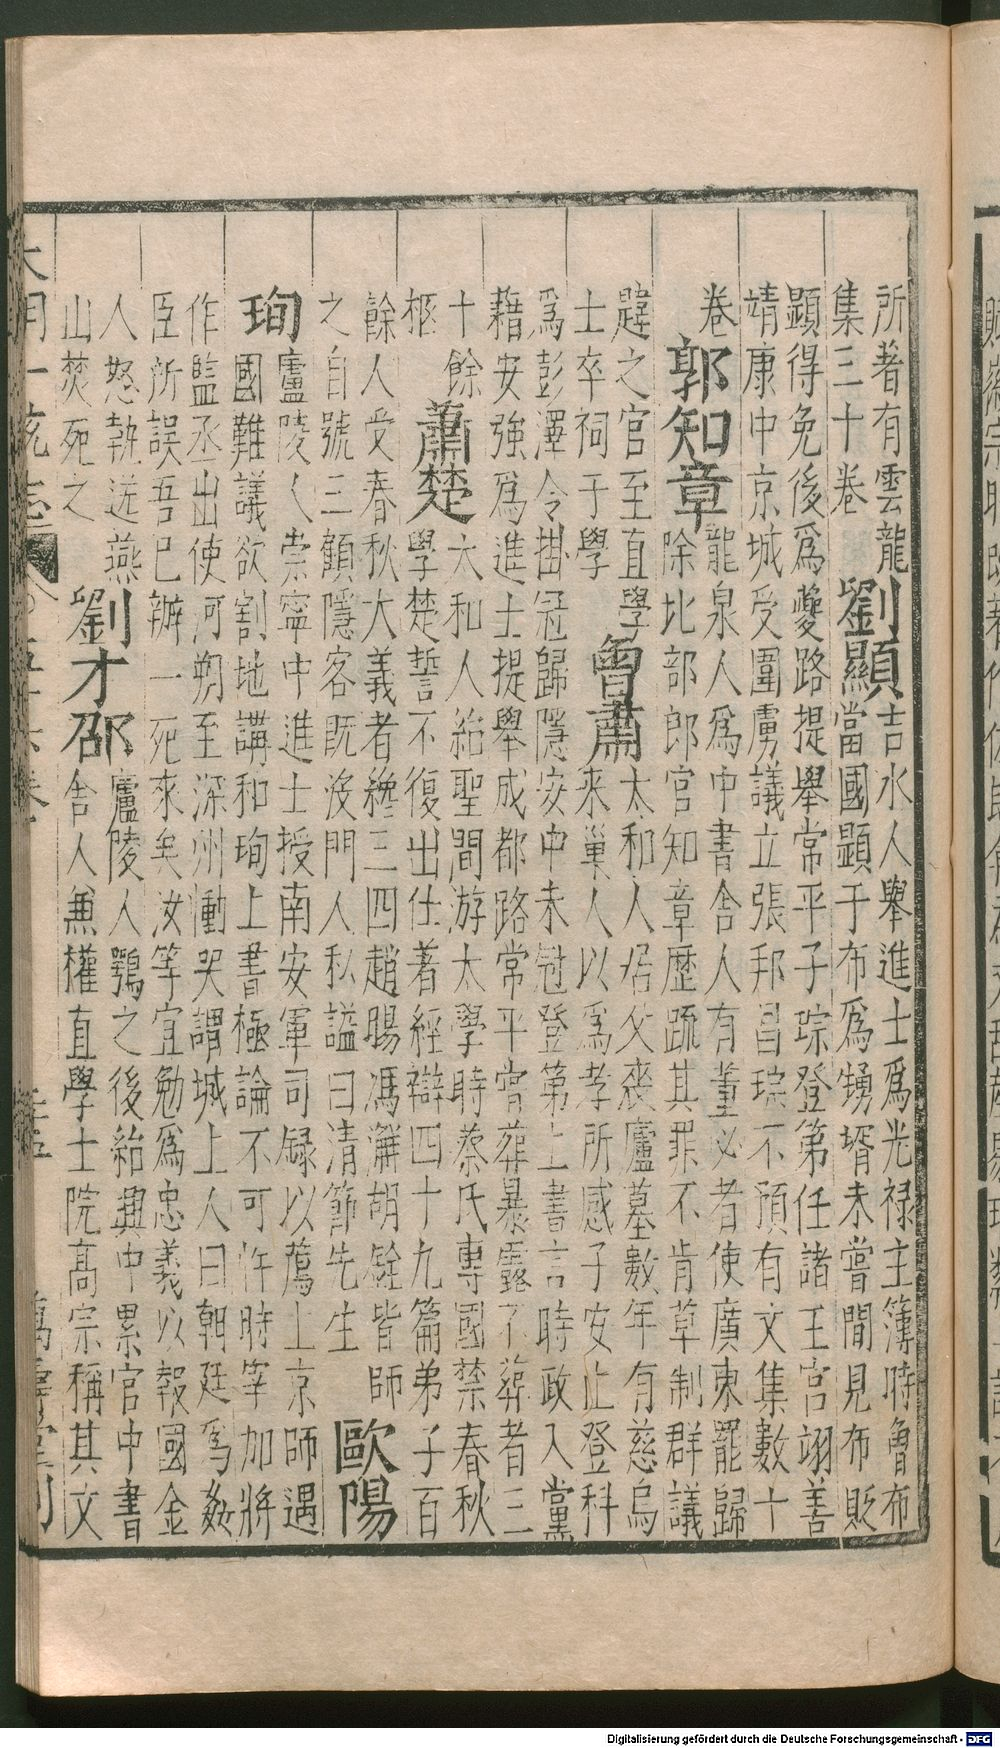 所著有雲龍
集三十卷
劉顯
吉水人舉進士爲光禄主簿時魯布
當國顕于布爲甥壻未嘗間見布貶
顕得免後爲夔路提舉常平子琮登第任諸王宮翊善
靖康中京城受圍虜議立張邦昌琮不預有文集數十
卷
郭知章
龍泉人爲中書舍人有董必者使廣東罷歸
除比部郎官知章歷疏其罪不肯草制群議
韙之官至直學
士卒祠于學
曾肅
太和人居父丧廬墓數年有慈烏
來巢人以爲孝所感子安止登科
爲彭澤令掛冠歸隱安中未冠登第上書言時政入黨
藉安強爲進士提舉成都路常平嘗葬暴露不葬者三
十餘
柩
蕭楚
太和人紹聖間游太學時蔡氏專國禁春秋
學楚誓不復出仕著經辯四十九篇弟子百
餘人受春秋大義者纔三四趙暘馮澥胡銓皆師
之自號三顧隱客既没門人私謚曰清節先生
歐陽
珣
廬陵人崇寧中進士授南安軍司録以薦上京師遇
國難議欲割地講和珣上書極論不可許時宰加將
作監丞出使河朔至深州慟哭謂城上人曰朝廷爲姦
臣所誤吾已辦一死來矣汝等宜勉爲忠義以報國金
人怒執送燕
山焚死之
劉才邵
廬陵人鶚之後紹興中累官中書
舍人兼權直學士院高宗稱其文
大明一統志
萬壽堂刊
Digitalisierung gefördert durch die Deutsche Forschungsgemeinschaft - DFG